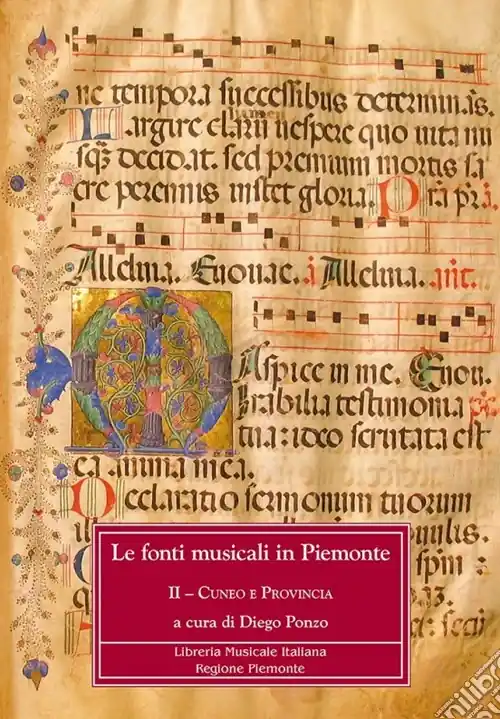 ne tempora successibus determinas.
lumen
Largire clarū uespere quo uita nu
sq̄ decidat. sed premium mortis sa
cre perennis instet gloria.
Alleluia. Euouae. a Alleluia. ant.
Aspice in me. Euou.
Mirabilia testimonia
tua: ideo scrutata est
ea anima mea.
Declaratio sermonum tuorum
Le fonti musicali in Piemonte
II – Cuneo e Provincia
a cura di Diego Ponzo
Libreria Musicale Italiana
Regione Piemonte